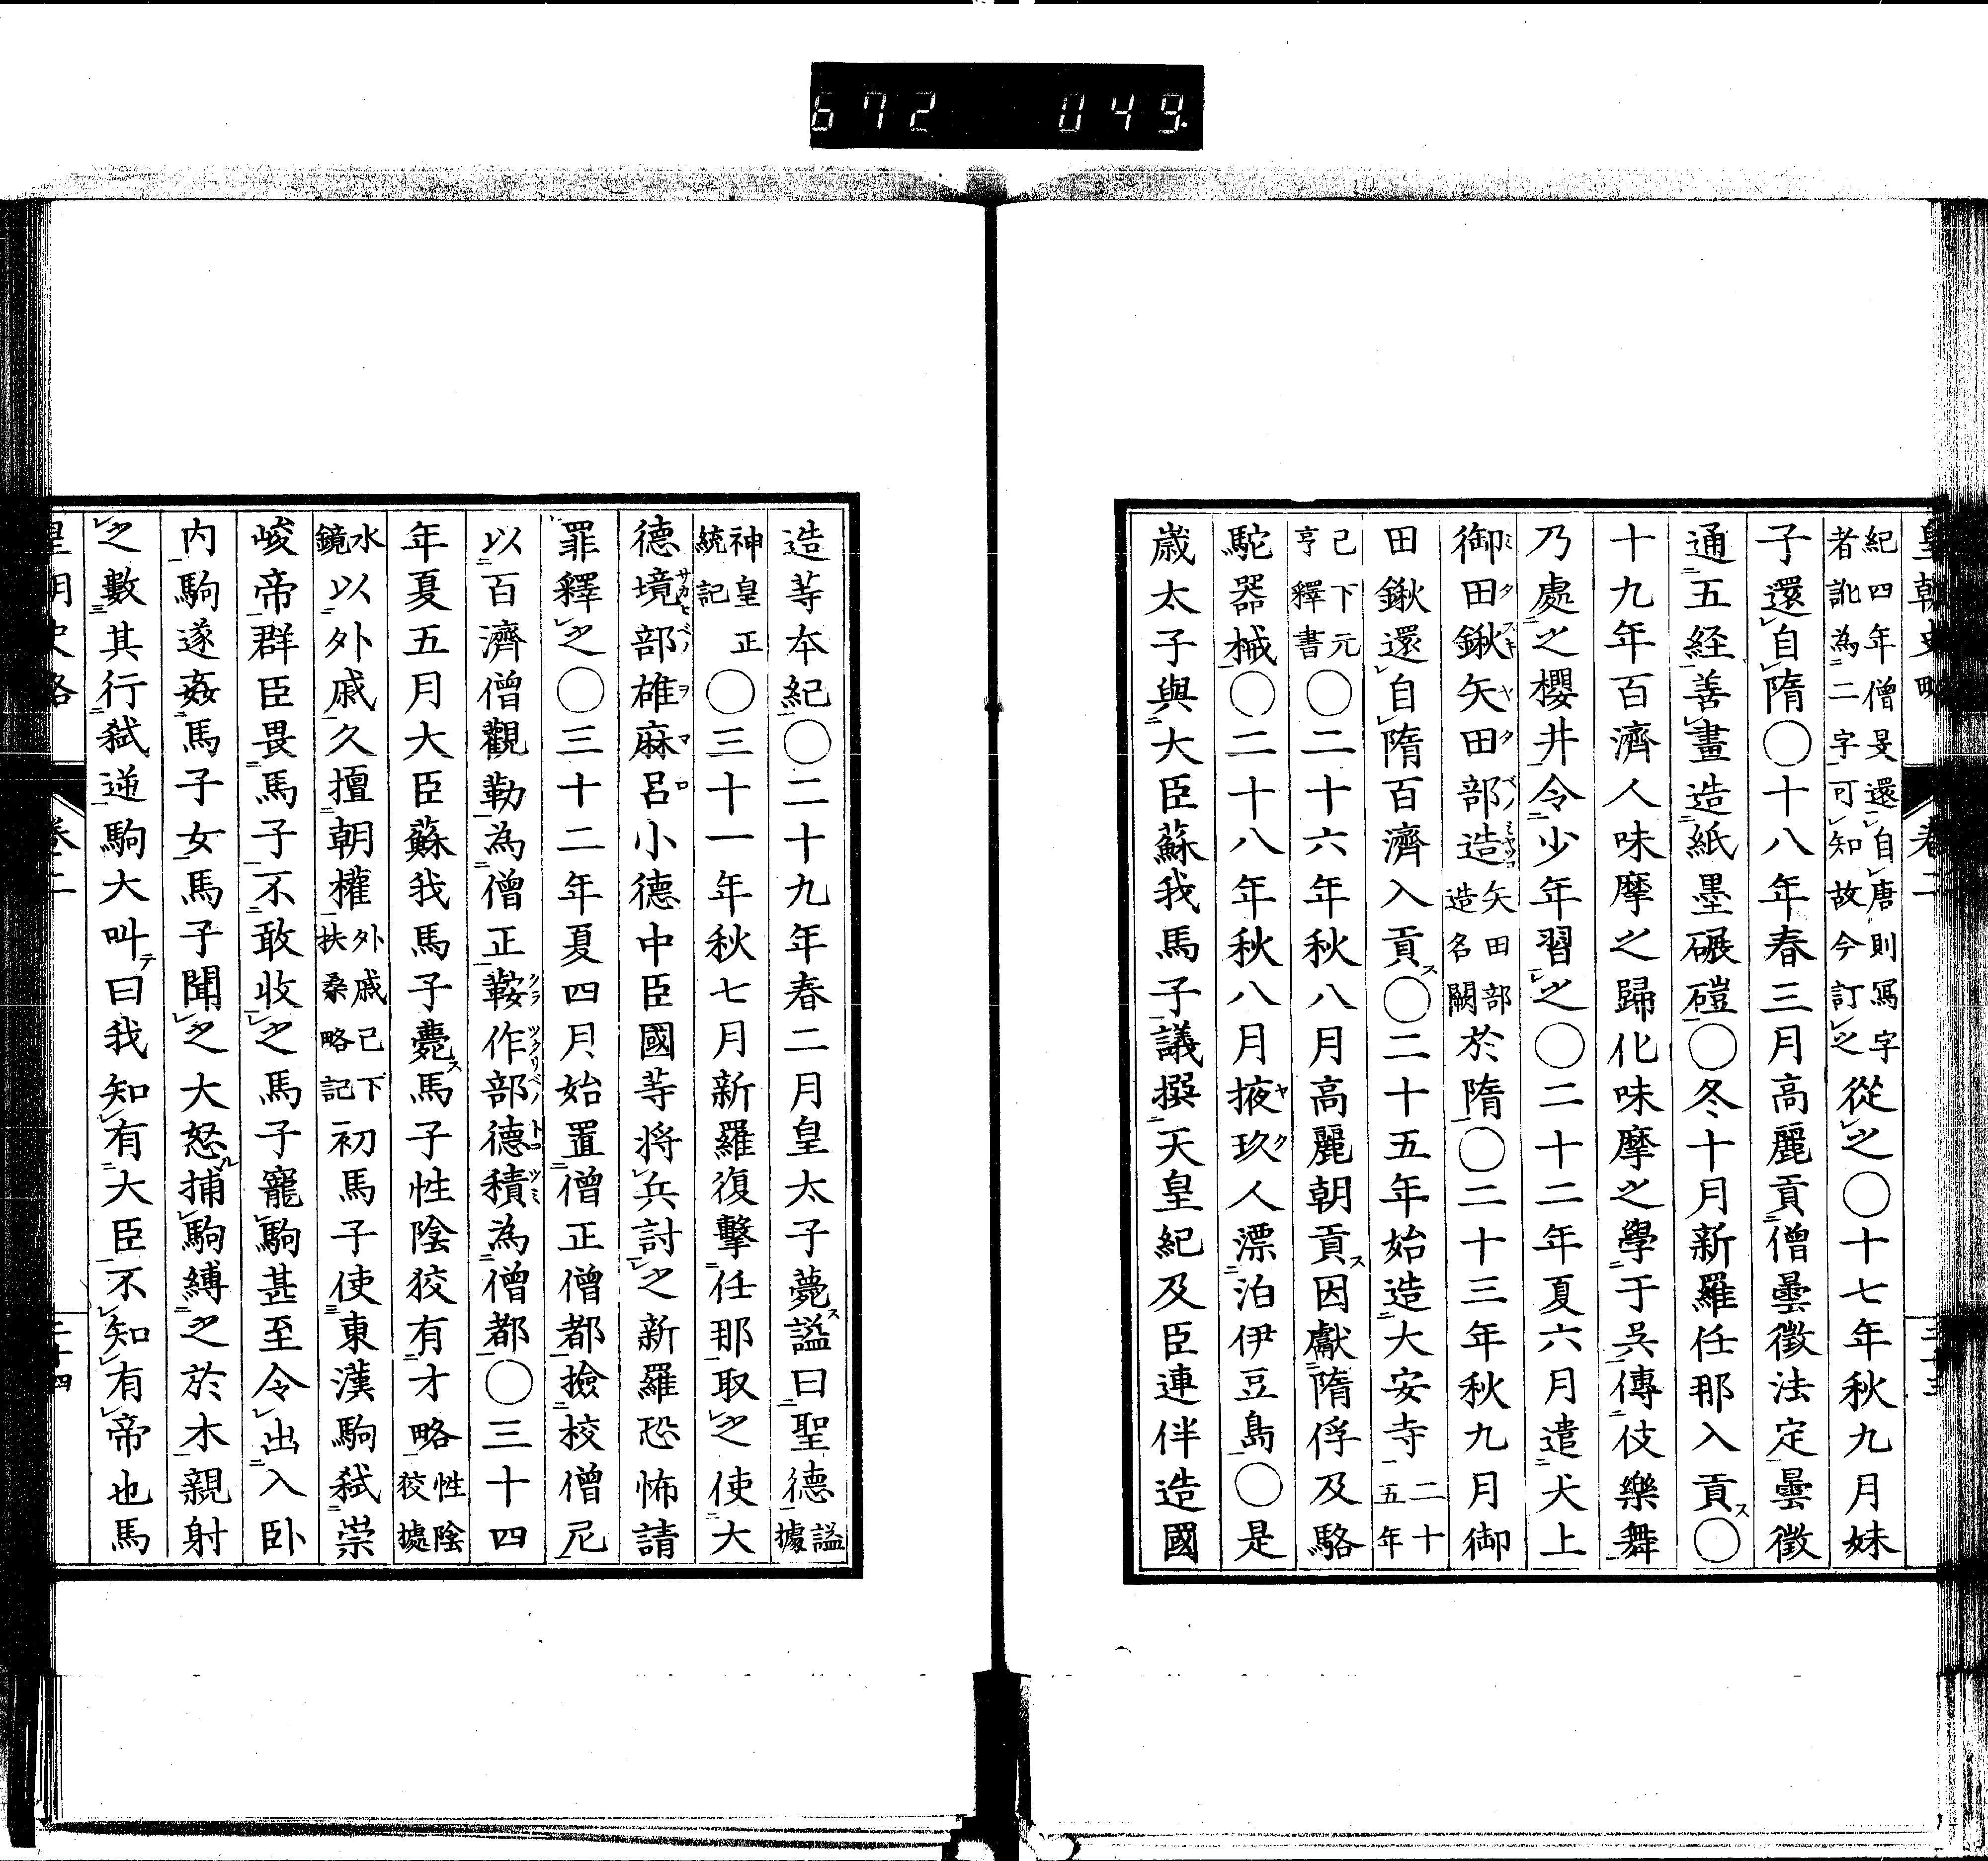 672 049
皇朝史略 卷二 三十三
紀四年僧旻還自唐則寫字者訛為二字可知故今訂之從之〇十七年秋九月妹
子還自隋〇十八年春三月高麗貢僧曇徵法定曇徵
通五経善畫造紙墨碾磑〇冬十月新羅任那入貢ス〇
十九年百濟人味摩之歸化味摩之學于吳傳伎樂舞
乃處之櫻井令少年習之〇二十二年夏六月遣犬上
御田鍬矢田部造矢田部造名闕於隋〇二十三年秋九月御
田鍬還自隋百濟入貢ス〇二十五年始造大安寺二十五年
已下元亨釋書〇二十六年秋八月高麗朝貢ス因獻隋俘及駱
駝器械〇二十八年秋八月掖玖人漂泊伊豆島〇是
歲太子與大臣蘇我馬子議撰天皇紀及臣連伴造國
造等本紀〇二十九年春二月皇太子薨ス謚曰聖德謚據
神皇正統記〇三十一年秋七月新羅復擊任那取之使大
德境部雄麻呂小德中臣國等将兵討之新羅恐怖請
罪釋之〇三十二年夏四月始置僧正僧都撿校僧尼
以百濟僧觀勒為僧正鞍作部德積為僧都〇三十四
年夏五月大臣蘇我馬子薨ス馬子性陰狡有才略性陰狡據
水鏡以外戚久擅朝權外戚已下扶桑略記初馬子使東漢駒弑崇
峻帝群臣畏馬子不敢收之馬子寵駒甚至令出入卧
内駒遂姦馬子女馬子聞之大怒捕駒縛之於木親射
之數其行弑逆駒大叫テ曰我知有大臣不知有帝也馬
皇朝史略 卷二 三十四